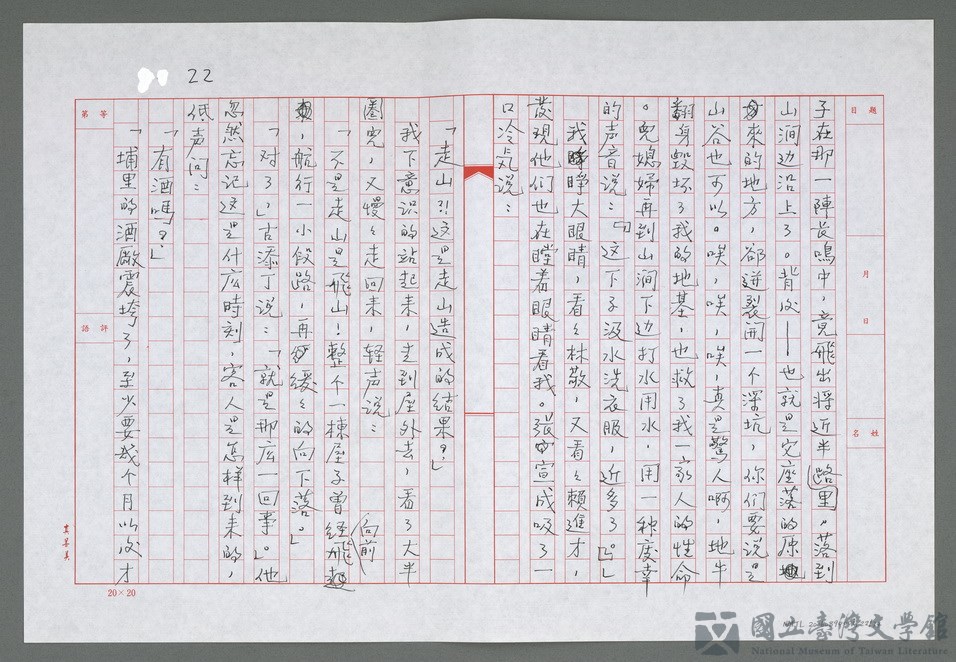 22
題目
月
日
姓名
子在那一陣長鳴中，竟飛出將近半路里。落到
山涧边沿上了。背后——也就是它座落的原地
來的地方，卻迸裂開一个深坑，你们要说是
山谷也可以。唉，唉，唉，真是驚人啊，地牛
翻身毀坏了我的地基，也救了我一家人的性命
。兒媳婦再到山涧下边打水用水，用一种庆幸
的声音说：「这下子汲水洗衣服，近多了。」
我睜大眼睛，看看林敬，又看看賴進才，
發現他们也在瞠着眼睛看我。張宣成吸了一
口冷気说：
「走山！这是走山造成的结果？」
我下意识的站起来，走到屋外去，看了大半
圈兒，又慢慢走回来，轻声说：
「不是走山是飛山！整个一棟屋子曾经飛起
向前
，航行一小段路，再緩緩的向下落。」
「对了」，古添丁说：「就是那庅一回事。」他
忽然忘记这是什庅時刻，客人是怎样到来的，
低声问：
「有酒嗎？」
「埔里的酒厰震垮了，至少要幾个月以後才
等第
評語
20×20
國立臺灣文學館
National Museum of Taiwan Literature